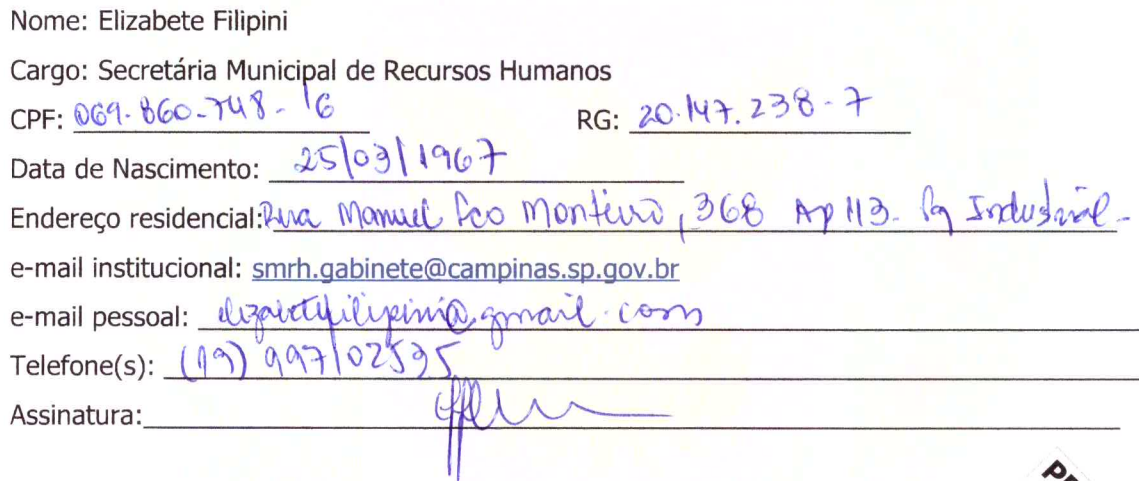 Nome: Elizabete Filipini
Cargo: Secretária Municipal de Recursos Humanos
CPF: 069.860-748-16 RG: 20.147.238-7
Data de Nascimento: 25/03/1967
Endereço residencial: Rua Manuel Fco Monteiro, 368 Ap 113 - Pq Industrial -
e-mail institucional: smrh.gabinete@campinas.sp.gov.br
e-mail pessoal: elizabetefilipini@gmail.com
Telefone(s): (19) 997102535
Assinatura: